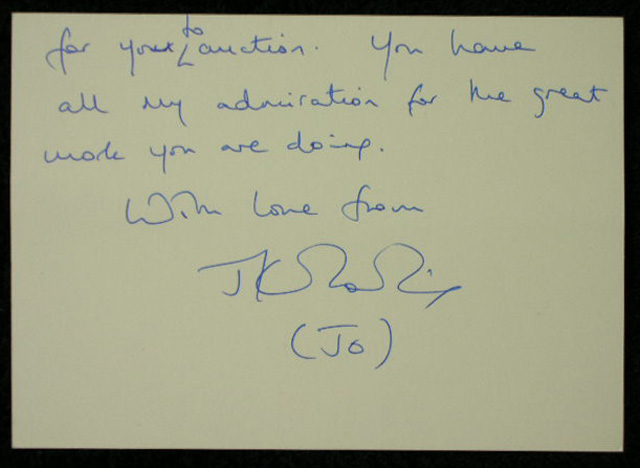 for you to auction. You have
all my admiration for the great
work you are doing.
With love from
JK Rowling
(Jo)